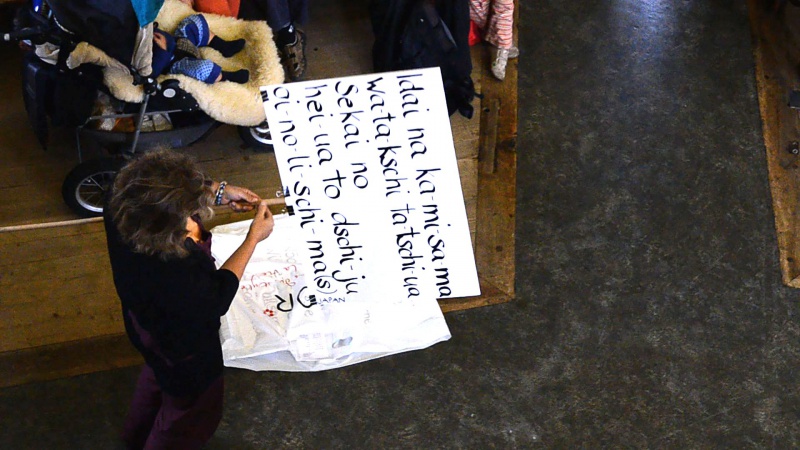 Idai na ka-mi-sa-ma
wa-ta-kschi ta-tschi-ua
Sekai no
hei-ua to dschi-ju
oi-no-li-schi-ma(s)
JAPAN
R